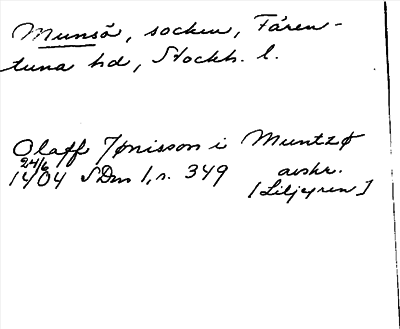 Munsö, socken, Fären-
tuna hd, Stockh. l.
Olaff Jønisson i Muntzø
24/6
1404 SDns 1, s. 349 avskr.
[Liljegren]